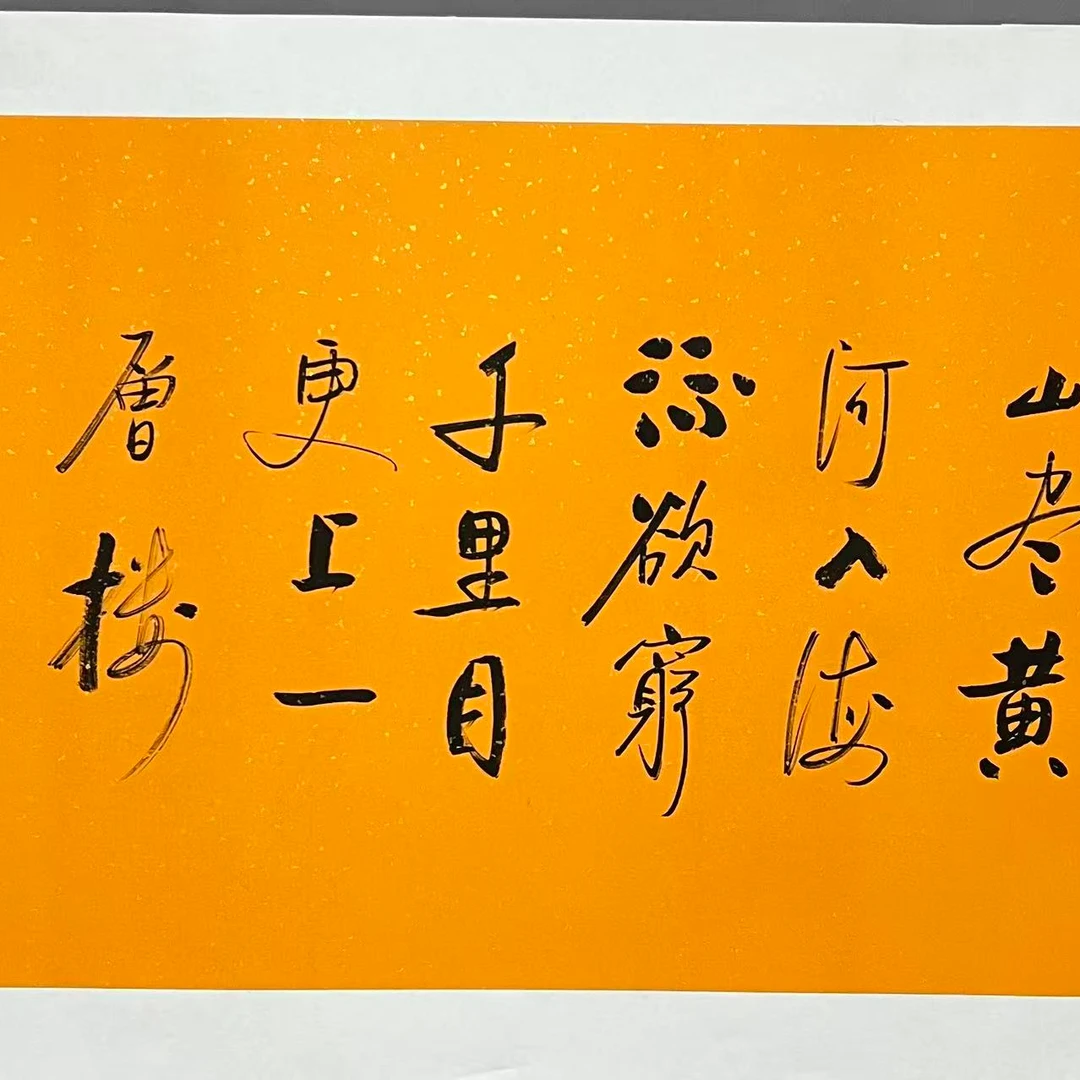 山尽黄
河入海
流欲窮
千里目
更上一
層楼